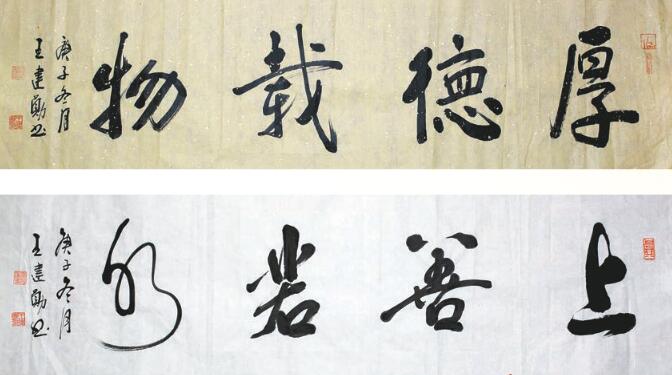 厚德载物
庚子冬月
王建勋书
上善若水
庚子冬月
王建勋书